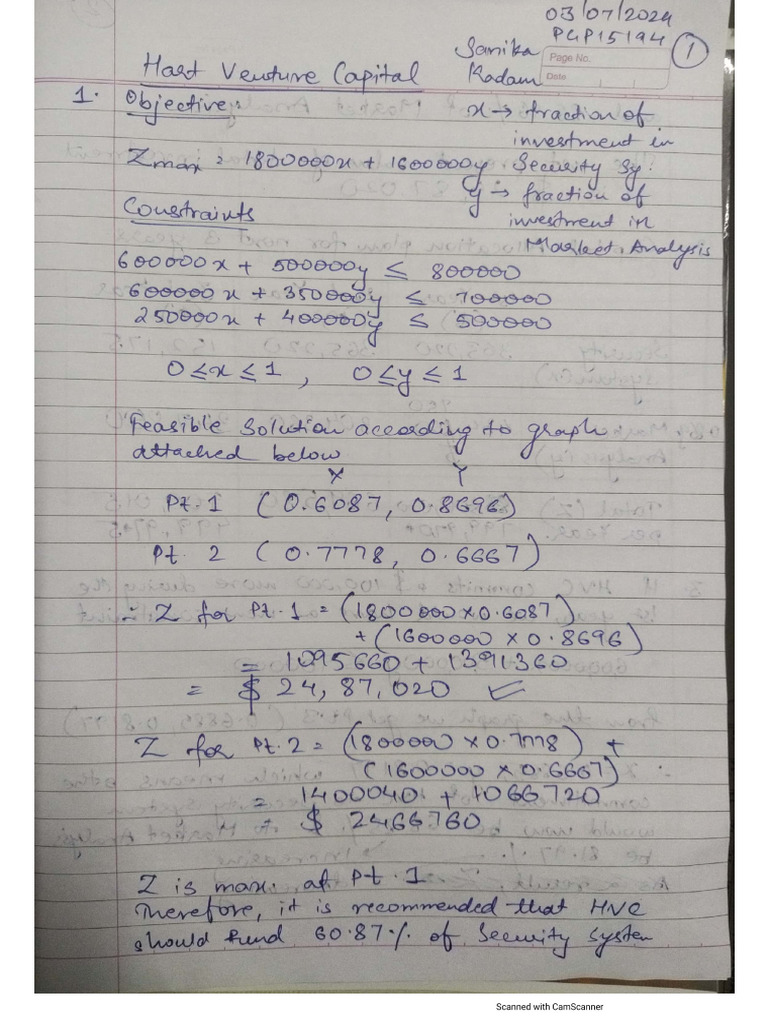 03/07/2024
PGP15194
1
Sanika
Kadam
Page No.
Date
Hart Venture Capital
1. Objective:
x → fraction of
investment in
Security Sy.
Zmax = 1800000x + 1600000y
y → fraction of
investment in
Market Analysis
Constraints
600000x + 500000y ≤ 800000
600000x + 350000y ≤ 700000
250000x + 400000y ≤ 500000
0 ≤ x ≤ 1 , 0 ≤ y ≤ 1
Feasible Solution according to graph
attached below
X Y
Pt. 1 (0.6087, 0.8696)
Pt. 2 (0.7778, 0.6667)
∴ Z for Pt. 1 = (1800000 x 0.6087)
+ (1600000 x 0.8696)
= 1095660 + 1391360
= $ 24,87,020 ✓
Z for Pt. 2 = (1800000 x 0.7778) +
(1600000 x 0.6667)
= 1400040 + 1066720
= $ 2466760
Z is max. at Pt. 1
Therefore, it is recommended that HVC
should fund 60.87% of Security System
Scanned with CamScanner